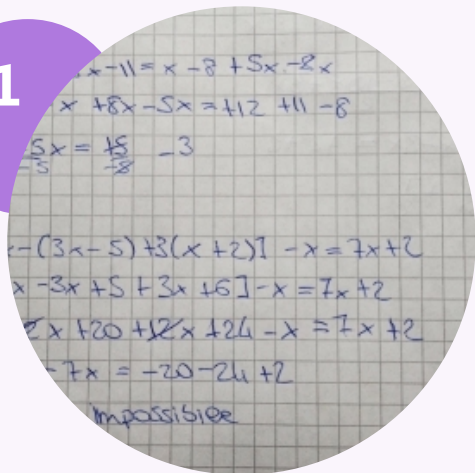 1
x-11=x-8+5x-8x
x+8x-5x=+12+11-8
5x = +5 -3
-5 -8
-(3x-5)+3(x+2)]-x=7x+2
x-3x+5+3x+6]-x=7x+2
x+20+12x+24-x=7x+2
-7x=-20-24+2
impossibile